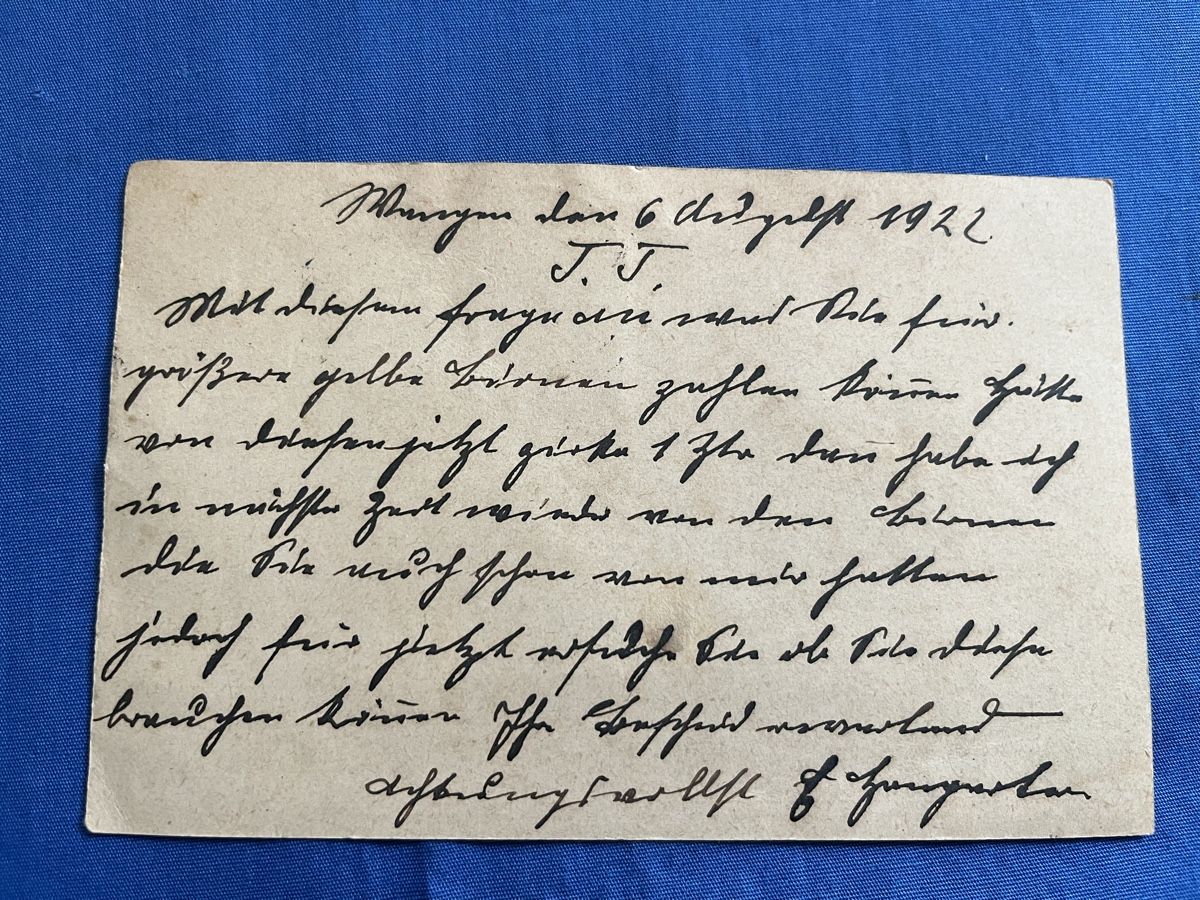 Wangen den 6 August 1922.
T. T.
Mit diesem frage an was Sie für
größere gelbe Birnen zahlen können hätte
von diesen jetzt zirka 1 Ztr dan̄ habe ich
in nächster Zeit wieder von den Birnen
die Sie auch schon von mir hatten
jedoch für jetzt ersuche Sie ob Sie diese
brauchen können Ihr Bescheid erwartend
Achtungsvollst E